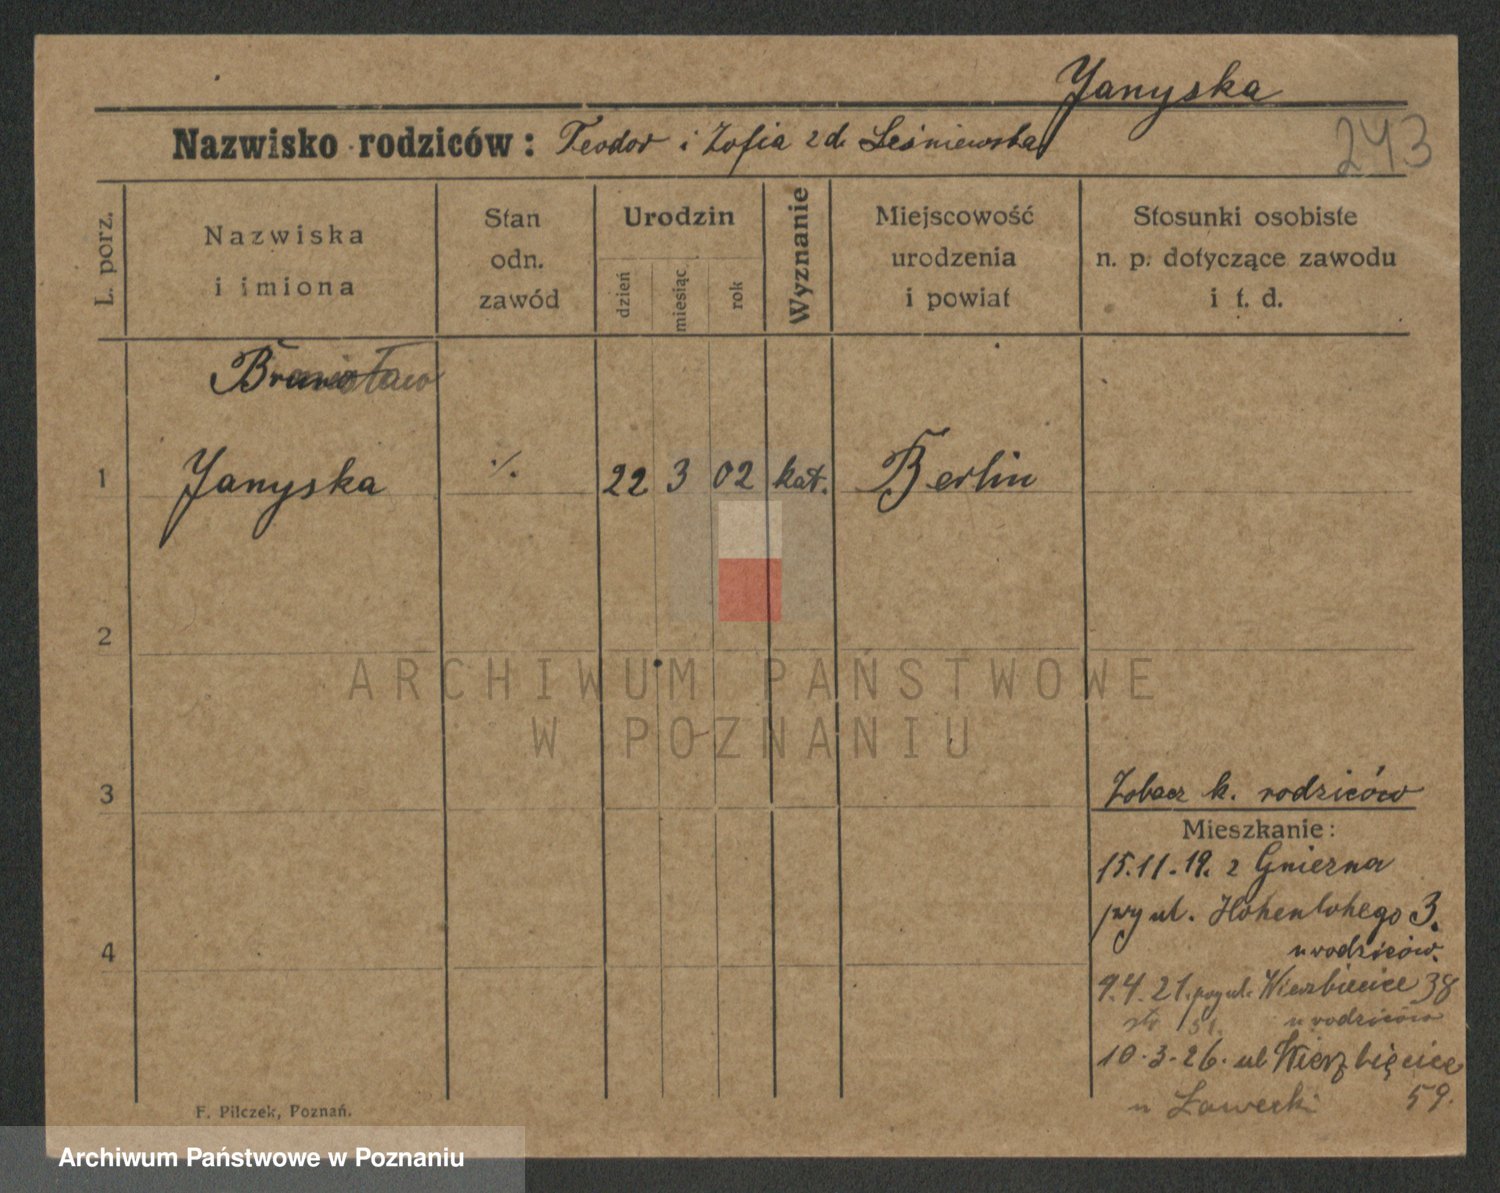 Janyska
Nazwisko rodziców: Teodor i Zofia z d. Leśniewska
243
L. porz.
Nazwiska
i imiona
Stan
odn.
zawód
Urodzin
dzień
miesiąc
rok
Wyznanie
Miejscowość
urodzenia
i powiat
Stosunki osobiste
n. p. dotyczące zawodu
i t. d.
Bronisław
1 Janyska ·/. 22 3 02 kat. Berlin
2
3
4
Zobacz k. rodziców
Mieszkanie:
15.11.19. z Gniezna
przy ul. Hohenlohego 3.
u rodziców.
9.4.21. przy ul. Wierzbięcice 38
u rodziców
10.3.26. ul Wierzbięcice
u Ławecki 59.
F. Pilczek, Poznań.
ARCHIWUM PAŃSTWOWE
W POZNANIU
Archiwum Państwowe w Poznaniu